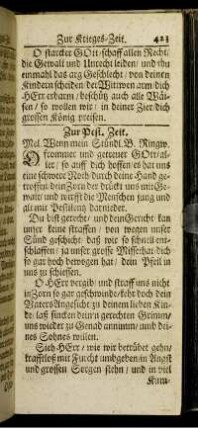 Zur Krieges-Zeit. 423
O starcker GOtt/schaff allen Recht/
die Gewalt und Unrecht leiden/ und thu
einmahl das arg Geschlecht/ von deinen
Kindern scheiden/ der Wittwen arm dich
HErr erbarm/ beschütz auch alle Wäi-
sen/ so wollen wir/ in deiner Zier/dich
grossen König preisen.
Zur Pest. Zeit.
Mel. Wenn mein Stündl. B. Ringw.
O frommer und getreuer GOtt/al-
ler/ so auff dich hoffen/es hat uns
eine schwere Noth durch deine Hand ge-
troffen/ dein Zorn der drückt uns mit Ge-
walt/ und wirfft die Menschen jung und
alt mit Pestilentz darnieder.
Du bist gerecht/ und dein Gericht kan
unser keine straffen/ von wegen unser
Sünd geschicht/ daß wir so schnell ent-
schlaffen/ ja unser grosse Missethat dich
so gar hoch bewogen hat/ dein Pfeil in
uns zu schiessen.
O HErr vergib/ und straff uns nicht
in Zorn so gar geschwinde/kehr doch dein
Vaters Angesicht/ zu deinem lieben Kin-
de/ laß sincken dein'n gerechten Grimm/
uns wieder zu Genad annimm/ umb dei-
nes Sohnes willen.
Sieh HErr/ wie wir betrübet gehn/
krafftloß mit Furcht umbgeben/in Angst
und grossen Sorgen stehn/ und in viel
Kum-